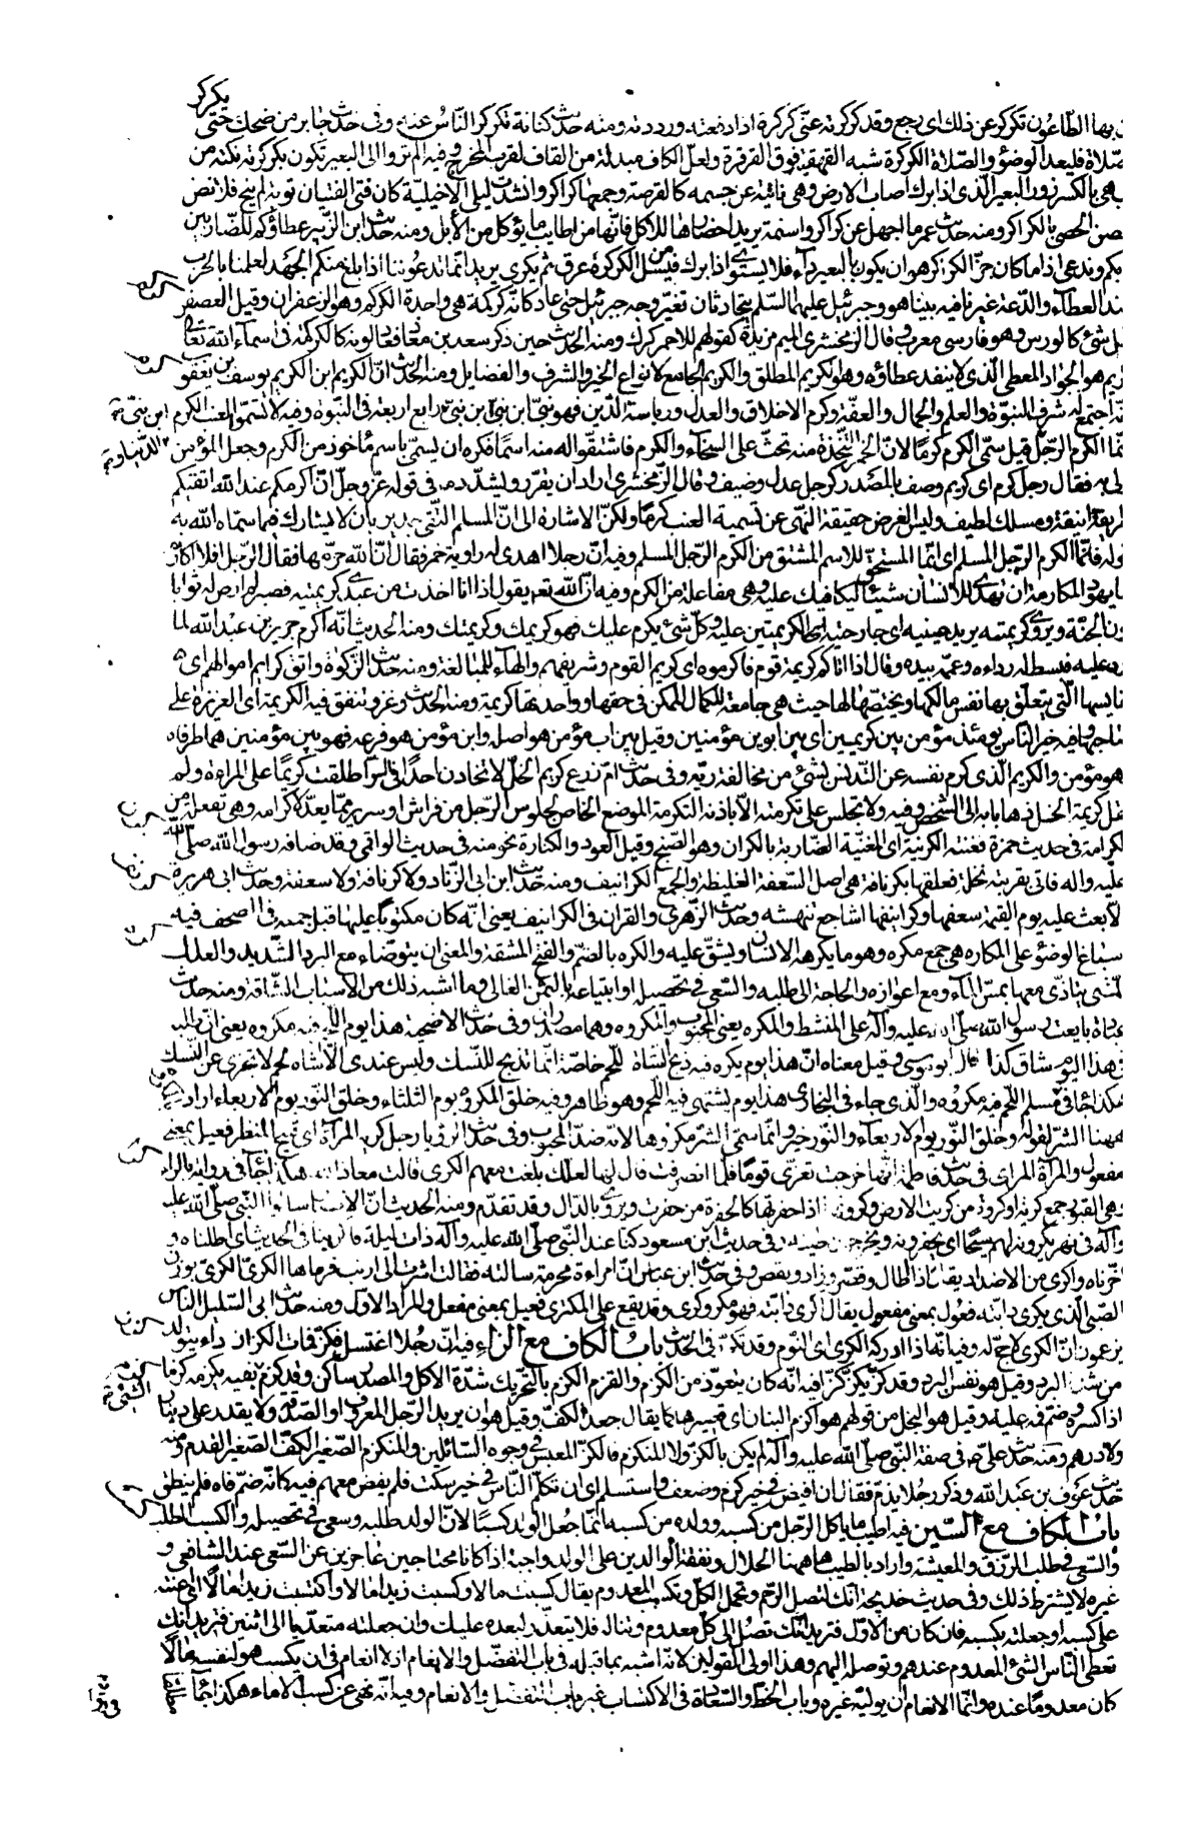 بها الطاعون تكركر عن ذلك اى رجع وقد كركرته عنّى كركرة اذا دفعته ورددته ومنه حديث كنانة تكركر الناسُ عنه وفى حديث جابر من ضحك حتى يكركر
صّلاة فليعد الوضؤ والصّلاة الكركرة شبه القهقهة فوق القرقرة ولعلّ الكاف مبدلة من القاف لقرب المخرج وفيه الم تروا الى البعير تكون بكركرته نكتة من
هى بالكسر زور البعير الّذى اذا برك اصاب الارض وهى ناتئة عن جسمه كالقرصة وجمعها كراكر وانشدت ليلى الاخيلية كان فتى الفتيان توبة لم ينخ قلائص
صن الحصى بالكراكر ومنه حديث عمر ما اجهل عن كراكر واسنمة يريد احضارها للاكل فانّها من اطايب ما يؤكل من الأبل ومنه حديث ابن الزّبير عطاؤكم للضّاربين
بكم وندعى اذا ما كان حزّ الكراكر هو ان يكون بالبعير داء فلا يستوى اذا برك فيسلّ من الكركرة عرق ثم يكوى يريد انما تدعوننا اذا بلغ منكم الجهد لعلمنا بالحرب
ند العطاء والدّعة غيرنا فيه بينا هو وجبرئيل عليهما السّلم يتحادثان تغيّر وجه جبرئيل حتى عاد كانّه كركمة هى واحدة الكركم وهو الزعفران وقيل العصفر
ل شئ كالورس وهو فارسى معرب وقال الزمخشرى الميم مزيدة كقولهم للاحمر كرك ومنه الحديث حين ذكر سعد بن معاذ فعاد لونه كالكركمة فى اسماء الله تعالى
ريم هو الجواد المعطى الّذى لا ينفد عطاؤه وهو الكريم المطلق والكريم الجامع لانواع الخير والشرف والفضايل ومنه الحديث انّ الكريم ابن الكريم يوسف بن يعقوب
نّه اجتمع له شرف النبوّة والعلم والجمال والعفّة وكرم الاخلاق والعدل ورياسة الدّين فهو نبىّ ابن نبىّ ابن نبىّ رابع اربعة فى النبوّة وفيه لا تسمّوا العنب الكرم
نّما الكرم الرّجل قيل سمّى الكرم كرمًا لانّ الخمر المتّخذة منه تحثّ على السخاء والكرم فاشتقّوا له منه اسمًا فكره ان يسمّى باسم مأخوذ من الكرم وجعل المؤمن
لى به فقال رجل كرم اى كريم وصف بالمصدر كرجل عدل وضيف وقال الزمخشرى اراد ان يقرّر ويشدّد ما فى قوله عزّ وجلّ انّ اكرمكم عند الله اتقيكم
ريقة انيقة ومسلك لطيف وليس الغرض حقيقة النهى عن تسمية العنب كرمًا ولكنّ الاشارة الى انّ المسلم التقى جدير بان لا يشارك فيما سماه الله به
وله فانّما الكرم الرّجل المسلم اى انّما المستحقّ للاسم المشتق من الكرم الرّجل المسلم وفيه انّ رجلا اهدى له راوية خمر فقال انّ الله حرّمها فقال الرّجل افلا اكارم
ايهود المكارمة ان تهدى للانسان شيئا ليكافيك عليه وهى مفاعلة من الكرم وفيه انّ الله تعم يقول اذا انا اخذت من عبدى كريمتيه فصبر لم ارض له ثوابا
ون الجنّة ويروى كريمته يريد عينيه اى جارحتيه اى الكريمتين عليه وكلّ شئ يكرم عليك فهو كريمك وكريمتك ومنه الحديث انّه اكرم جرير بن عبد الله لما
رد عليه فبسط له رداءه وعمّمه بيده وقال اذا اتاكم كريمة قوم فاكرموه اى كريم القوم وشريفهم والهاء للمبالغة ومنه حديث الزكوة واتق كرايم اموالهم اى
نايسها الّتى يتعلّق بها نفس مالكها ويختصّها لها حيث هى جامعة للكمال الممكن فى حقها وواحدتها كريمة ومنه الحديث وغزو تنفق فيه الكريمة اى العزيزة على
احبها وفيه خير الناس يومئذ مؤمن بين كريمين اى بين ابوين مؤمنين وقيل بين اب مؤمن هو اصله وابن مؤمن هو فرعه فهو بين مؤمنين هما طرفاه
هو مؤمن والكريم الّذى كرم نفسه عن التّدنس بشئ من مخالفة ربّه وفى حديث امّ زرع كريم الخلّ لا تخادن احدًا فى السرّ اطلقت كريمًا على المراءة ولم
قل كريمة الخلّ ذهابا به الى الشخص وفيه ولا يجلس على تكرمته الّا باذنه التكرمة الموضع الخاص لجلوس الرّجل من فراش او سرير ممّا يعدّ لاكرامه وهى تفعلة من
لكرامة فى حديث حمزة فغنته الكرنية اى المغنّية الضّاربة بالكران وهو الصنج وقيل العود والكنارة نحو منه فى حديث الواقمى وقد ضافه رسول الله صلّى الله
عليه واله فاتى بقربته نخلة فعلقها بكرنافة هى اصل السّعفة الغليظة والجمع الكرانيف ومنه حديث ابن ابى الزّناد ولا كرنافة ولا سعفة وحديث ابى هريرة
لّا بعث عليه يوم القيمة سعفها وكرانيفها اشاجع تنهشه وحديث الزّهرى والقران فى الكرانيف يعنى انّه كان مكتوبًا عليها قبل جمعه فى الصحف فيه
سباغ الوضؤ على المكاره هى جمع مكره وهو ما يكرهه الانسان ويشقّ عليه والكره بالضم والفتح المشقة والمعنى ان يتوضاء مع البرد الشديد والعلل
لّتى يتاذّى معها بمسّ الماء ومع اعوازه والحاجة الى طلبه والسّعى فى تحصيله او ابتياعه بالثمن الغالى وما اشبه ذلك من الاسباب الشاقة ومنه حديث
عبادة بايعت رسول الله صلّى الله عليه وآله على المنشط والمكره يعنى المحبوب والمكروه وهما مصدران وفى حديث الاضحية هذا يوم اللّحم فيه مكروه يعنى انّ طلبه
فى هذا اليوم شاق كذا قال ابو موسى وقيل معناه انّ هذا يوم يكره فيه ذبح شاة للّحم خاصّة انّما تذبح للنّسك وليس عندى الّا شاة لحم لا تجزى عن النّسك
هكذا جاء فى مسلم اللّحم فيه مكروه والّذى جاء فى البخارى هذا يوم يشتهى فيه اللّحم وهو ظاهر وفيه خلق المكروه يوم الثلثاء وخلق النّور يوم الاربعاء اراد
ههنا الشّر لقوله وخلق النّور يوم الاربعاء والنّور خير وانّما سمّى الشرّ مكروها لانّه ضدّ المحبوب وفى حديث الرؤيا رجل كريه المرآة اى قبيح المنظر فعيل بمعنى
مفعول والمرآة المراى فى حديث فاطمة انّها خرجت تعزّى قومًا فلمّا انصرفت قال لها لعلّك بلغت معهم الكرى قالت معاذ الله هكذا جاء فى رواية بالراء
وهى القبور جمع كرية او كروة من كريت الارض وكروتها اذا حفرتها كالحفرة من حفرت ويروى بالدّال وقد تقدّم ومنه الحديث انّ الانصار سألوا النّبى صلّى الله عليه
وآله فى نهر يكرونه لهم سيحًا اى يحفرونه ويخرجون طينه وفى حديث ابن مسعود كنّا عند النّبى صلّى الله عليه وآله ذات ليلة فاكرينا فى الحديث اى اطلناه و
اخّرناه واكرى من الاضداد يقال اذا اطال وقصّر وزاد ونقص وفى حديث ابن عباس انّ امراءة محرمة سالته فقالت اشرت الى ارنب فرماها الكرىّ الكرىّ بوزن
الصّبى الّذى يكرى دابّته فعول بمعنى مفعول يقال اكرى دابّته فهو مكر وكرى وقد يقع على المكترى فعيل بمعنى مفعل والمراد الاوّل ومنه حديث ابى السّليل الناس
يزعمون انّ الكرى لا حجّ له وفيه انّه اذا ادركه الكرى اى النّوم وقد تكرّر فى الحديث بابُ الكاف مع الزاء فيه انّ رجُلا اغتسل فكزّ فمات الكزاز داء يتولّد
من شدّة البرد وقيل هو نفس البرد وقد كزّ يكزّ كزًّا فيه انّه كان يتعوّذ من الكزم والقزم الكزم بالتّحريك شدّة الاكل والمصدر ساكن وقد كزم بفيه يكزمه كزما
اذا كسره وضمّ فمه عليه وقيل هو البخل من قولهم هو اكزم البنان اى قصيرها كما يقال جعد الكفّ وقيل هو ان يريد الرّجل المعروف او الصّدقة ولا يقدر على دينار
ولا درهم ومنه حديث علىّ ع فى صفة النّبى صلّى الله عليه وآله لم يكن بالكزّ ولا المنكزم فالكزّ المعبس فى وجوه السّائلين والمنكزم الصّغير الكفّ الصّغير القدم ومنه
حديث عون بن عبد الله وذكر رجُلا يذم فقال ان افيض فى خير كزم وضعف واستسلم اى ان تكلّم النّاس فى خير سكت فلم يفض معهم فيه كانّه ضمّ فاه فلم ينطق
بابُ الكاف مع السّين فيه اطيب ما ياكل الرّجل من كسبه وولده من كسبه انّما جُعل الولد كسبًا لانّ الوالد طلبه وسعى فى تحصيله والكسب الطلب
والسّعى فى طلب الرّزق والمعيشة واراد بالطيب ههنا الحلال ونفقة الوالدين على الولد واجبة اذا كانا محتاجين عاجزين عن السّعى عند الشافعى و
غيره لا يشترط ذلك وفى حديث خديجة انّك لتصل الرّحم وتحمل الكلّ وتكسب المعدوم يقال كسبت مالا وكسبت زيدا مالا واكتسبت زيدا مالًا اى اعنته
على كسبه او جعلته يكسبه فان كان من الاوّل فتريد انّك تصل الى كلّ معدوم وتناله فلا يتعذّر لبعده عليك وان جعلته متعدّيا الى اثنين فتريد انّك
تعطى النّاس الشئ المعدوم عندهم وتوصله اليهم وهذا اولى القولين لانّه اشبه بما قبله فى باب التفضّل والانعام اذ لا انعام فى ان يكسب هو لنفسه مالًا
كان معدومًا عنده وانّما الانعام ان يوليه غيره وباب الحظّ والسّعادة فى الاكتساب غير باب التفضّل والانعام وفيه انّه نهى عن كسب الاماء هكذا جاء